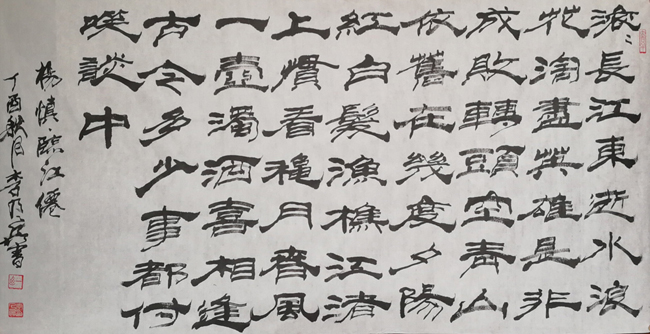 滾〻長江東逝水浪
花淘盡英雄是非
成敗轉頭空青山
依舊在幾度夕陽
紅白髮漁樵江渚
上慣看穐月春風
一壺濁酒喜相逢
古今多少事都付
咲談中
楊慎·臨江僊
丁酉秋月李書